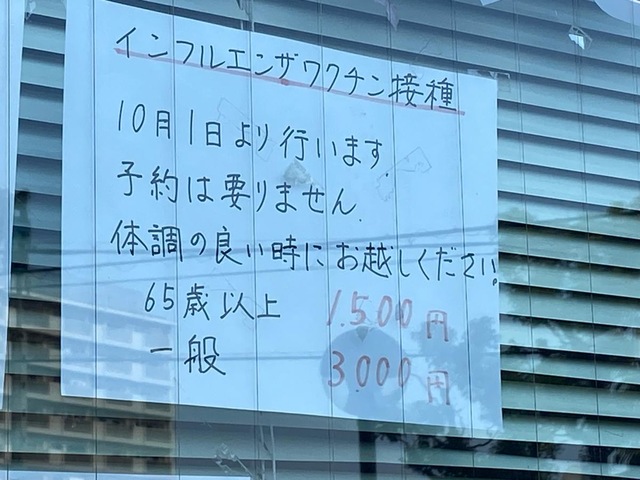 インフルエンザワクチン接種
10月1日より行います
予約は要りません.
体調の良い時にお越しください。
65歳以上 1.500円
一般 3.000円